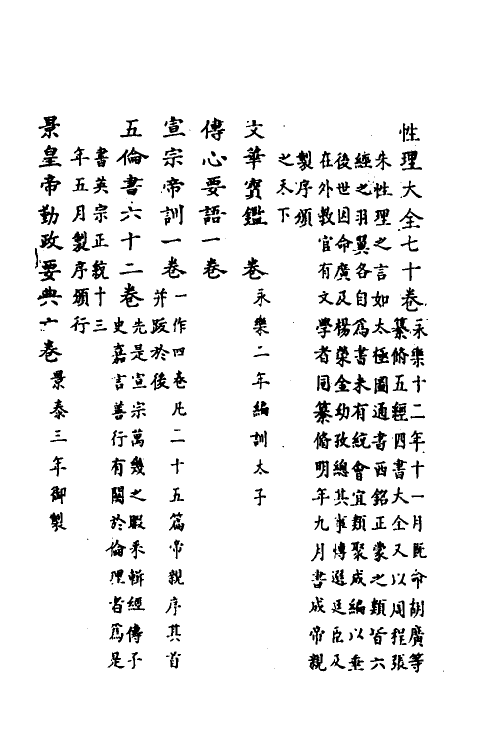 性理大全七十卷永樂十二年十一月既命胡廣等
纂脩五經四書大全又以周程張
朱性理之言如太極圖通書西銘正蒙之類皆六
經之羽翼各自為書未有統會宜類聚成編以垂
後世因命廣及楊榮金幼孜總其事傳選廷臣及
在外教官有文學者同纂脩明年九月書成帝親
製序頒
之天下
文華寳鑑 卷永樂二年編訓太子
傳心要語一卷
宣宗帝訓一卷一作四卷凡二十五篇帝親序其首
并跋於後
五倫書六十二卷先是宣宗萬幾之暇采輯經傳子
史嘉言善行有關於倫理者為是
書英宗正統十三
年五月製序頒行
景皇帝勤政要典六卷景泰三年御製